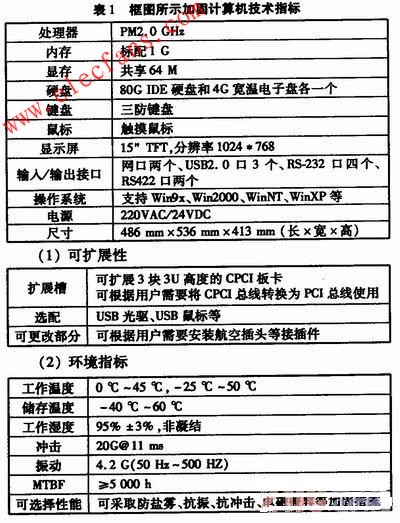 表1 框图所示加固计算机技术指标
处理器 PM2.0 GHz
内存 标配1 G
显存 共享64 M
硬盘 80G IDE硬盘和4G宽温电子盘各一个
键盘 三防键盘
鼠标 触摸鼠标
显示屏 15" TFT,分辨率1024*768
输入/输出接口 网口两个、USB2.0口3个、RS-232口四个、
RS422口两个
操作系统 支持Win9x、Win2000、WinNT、WinXP等
电源 220VAC/24VDC
尺寸 486 mm×536 mm×413 mm(长×宽×高)
(1)可扩展性
扩展槽 可扩展3块3U高度的CPCI板卡
可根据用户需要将CPCI总线转换为PCI总线使用
选配 USB光驱、USB鼠标等
可更改部分 可根据用户需要安装航空插头等接插件
(2)环境指标
工作温度 0 ℃~45 ℃,-25 ℃~50 ℃
储存温度 -40 ℃~60 ℃
工作湿度 95%±3%,非凝结
冲击 20G@11 ms
振动 4.2 G(50 Hz~500 HZ)
MTBF ≥5 000 h
可选择性能 可采取防盐雾、抗振、抗冲击、电磁屏蔽等加固措施
www.elecfans.com